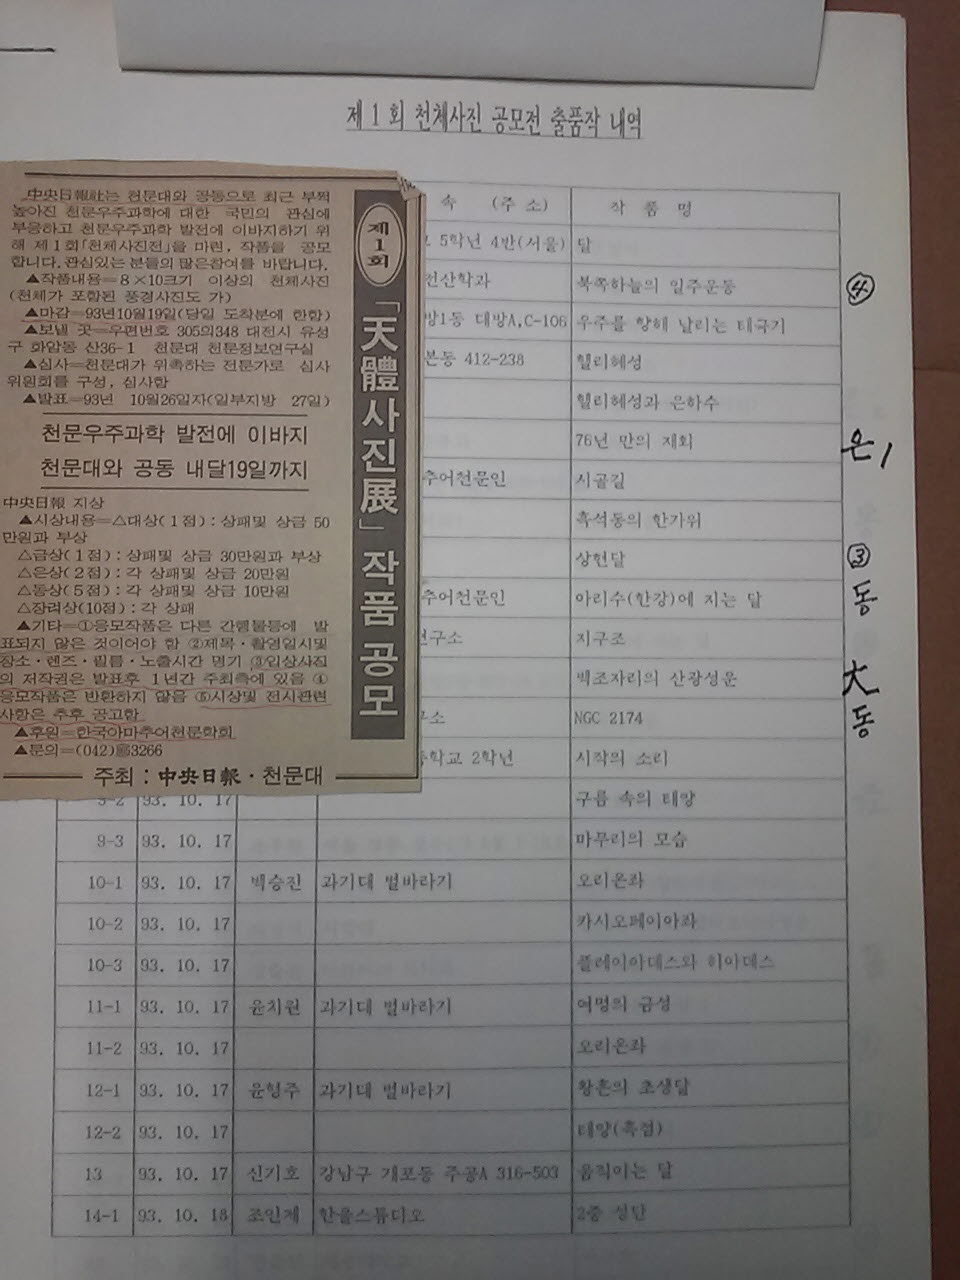 제 1 회 천체사진 공모전 출품작 내역
中央日報社는 천문대와 공동으로 최근 부쩍
높아진 천문우주과학에 대한 국민의 관심에
부응하고 천문우주과학 발전에 이바지하기 위
해 제1회「천체사진전」을 마련, 작품을 공모
합니다. 관심있는 분들의 많은참여를 바랍니다.
▲작품내용=8×10크기 이상의 천체사진
(천체가 포함된 풍경사진도 가)
▲마감=93년10월19일(당일 도착분에 한함)
▲보낼 곳=우편번호 305의348 대전시 유성
구 화암동 산36-1 천문대 천문정보연구실
▲심사=천문대가 위촉하는 전문가로 심사
위원회를 구성, 심사함
▲발표=93년 10월26일자(일부지방 27일)
천문우주과학 발전에 이바지
천문대와 공동 내달19일까지
中央日報 지상
▲시상내용=△대상(1점): 상패및 상금 50
만원과 부상
△금상(1점): 상패및 상금 30만원과 부상
△은상(2점): 각 상패및 상금 20만원
△동상(5점): 각 상패및 상금 10만원
△장려상(10점): 각 상패
▲기타=①응모작품은 다른 간행물등에 발
표되지 않은 것이어야 함 ②제목·촬영일시및
장소·렌즈·필름·노출시간 명기 ③입상사진
의 저작권은 발표후 1년간 주최측에 있음 ④
응모작품은 반환하지 않음 ⑤시상및 전시관련
사항은 추후 공고함
▲후원=한국아마추어천문학회
▲문의=(042) 3266
주최 : 中央日報·천문대
제1회
「天體사진展」 작품 공모
속 (주 소) 作 품 명
5학년 4반(서울) 달
전산학과 북쪽하늘의 일주운동 ④
방1동 대방A,C-106 우주를 향해 날리는 태극기
본동 412-238 핼리혜성
핼리혜성과 은하수
76년 만의 재회 은1
추어천문인 시골길
흑석동의 한가위
상현달 ③
추어천문인 아리수(한강)에 지는 달 동
연구소 지구조
백조자리의 산광성운 大
구소 NGC 2174 동
등학교 2학년 시작의 소리
9-2 93. 10. 17 구름 속의 태양
9-3 93. 10. 17 마무리의 모습
10-1 93. 10. 17 백승진 과기대 별바라기 오리온좌
10-2 93. 10. 17 카시오페이아좌
10-3 93. 10. 17 플레이아데스와 히아데스
11-1 93. 10. 17 윤치원 과기대 별바라기 여명의 금성
11-2 93. 10. 17 오리온좌
12-1 93. 10. 17 윤형주 과기대 별바라기 황혼의 초생달
12-2 93. 10. 17 태양(흑점)
13 93. 10. 17 신기호 강남구 개포동 주공A 316-503 움직이는 달
14-1 93. 10. 18 조인제 한을스튜디오 2중 성단